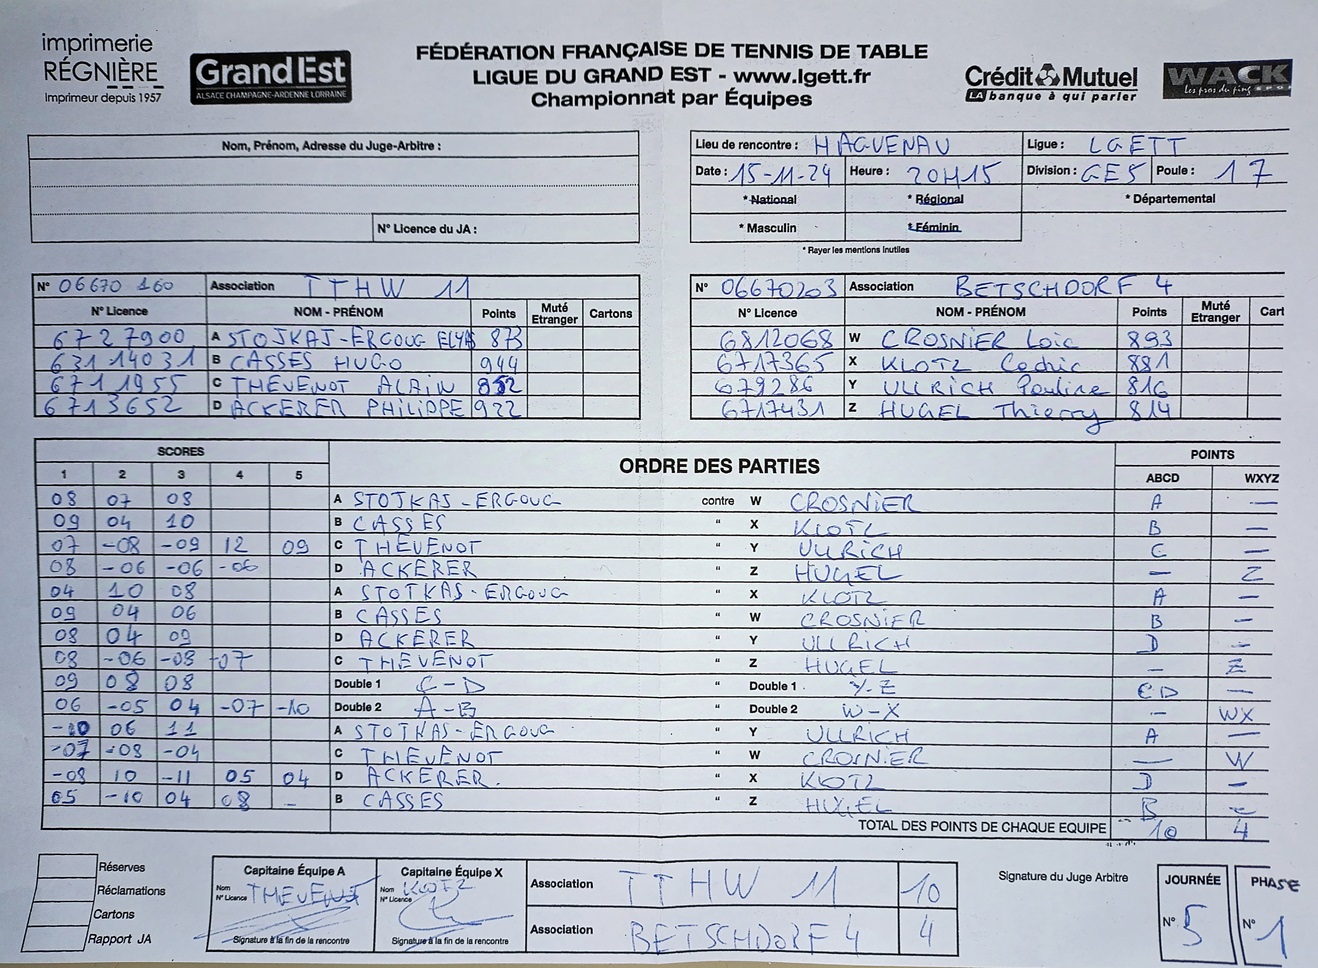 imprimerie
RÉGNIÈRE
Imprimeur depuis 1957
Grand Est
ALSACE CHAMPAGNE-ARDENNE LORRAINE
FÉDÉRATION FRANÇAISE DE TENNIS DE TABLE
LIGUE DU GRAND EST - www.lgett.fr
Championnat par Équipes
Crédit Mutuel
LA banque à qui parler
WACK
Les pros du ping
Nom, Prénom, Adresse du Juge-Arbitre :
N° Licence du JA :
Lieu de rencontre : HAGUENAU Ligue : LGETT
Date : 15-11-24 Heure : 20H15 Division : GE5 Poule : 17
* National * Régional * Départemental
* Masculin * Féminin
* Rayer les mentions inutiles
N° 06670 160 Association TTHW 11
N° Licence NOM - PRÉNOM Points Muté Etranger Cartons
6727900 A STOJKAJ-ERGOUG ELYAS 873
63114031 B CASSES HUGO 944
6711955 C THEVENOT ALAIN 852
6713652 D ACKERER PHILIPPE 922
N° 06670203 Association BETSCHDORF 4
N° Licence NOM - PRÉNOM Points Muté Etranger Cart
6812068 W CROSNIER Loic 893
6717365 X KLOTZ Cedric 881
679286 Y ULLRICH Pauline 816
6717431 Z HUGEL Thierry 814
SCORES ORDRE DES PARTIES POINTS
1 2 3 4 5 ABCD WXYZ
08 07 08 A STOJKAS-ERGOUG contre W CROSNIER A —
09 04 10 B CASSES " X KLOTZ B —
07 -08 -09 12 09 C THEVENOT " Y ULLRICH C —
08 -06 -06 -06 D ACKERER " Z HUGEL — Z
04 10 08 A STOTKAS-ERGOUG " X KLOTZ A —
09 04 06 B CASSES " W CROSNIER B —
08 04 09 D ACKERER " Y ULLRICH D —
08 -06 -03 -07 C THEVENOT " Z HUGEL — Z
09 08 08 Double 1 C-D " Double 1 Y-Z CD —
06 -05 04 -07 -10 Double 2 A-B " Double 2 W-X — WX
-10 06 11 A STOTKAS-ERGOUG " Y ULLRICH A —
-07 -08 -04 C THEVENOT " W CROSNIER — W
-08 10 -11 05 04 D ACKERER. " X KLOTZ D —
05 -10 04 08 - B CASSES " Z HUGEL B —
TOTAL DES POINTS DE CHAQUE EQUIPE 10 4
Réserves
Réclamations
Cartons
Rapport JA
Capitaine Équipe A
Nom THEVENOT
N° Licence
Signature à la fin de la rencontre
Capitaine Équipe X
Nom KLOTZ
N° Licence
Signature à la fin de la rencontre
Association TTHW 11 10
Association BETSCHDORF 4 4
Signature du Juge Arbitre
JOURNÉE
N° 5
PHASE
N° 1